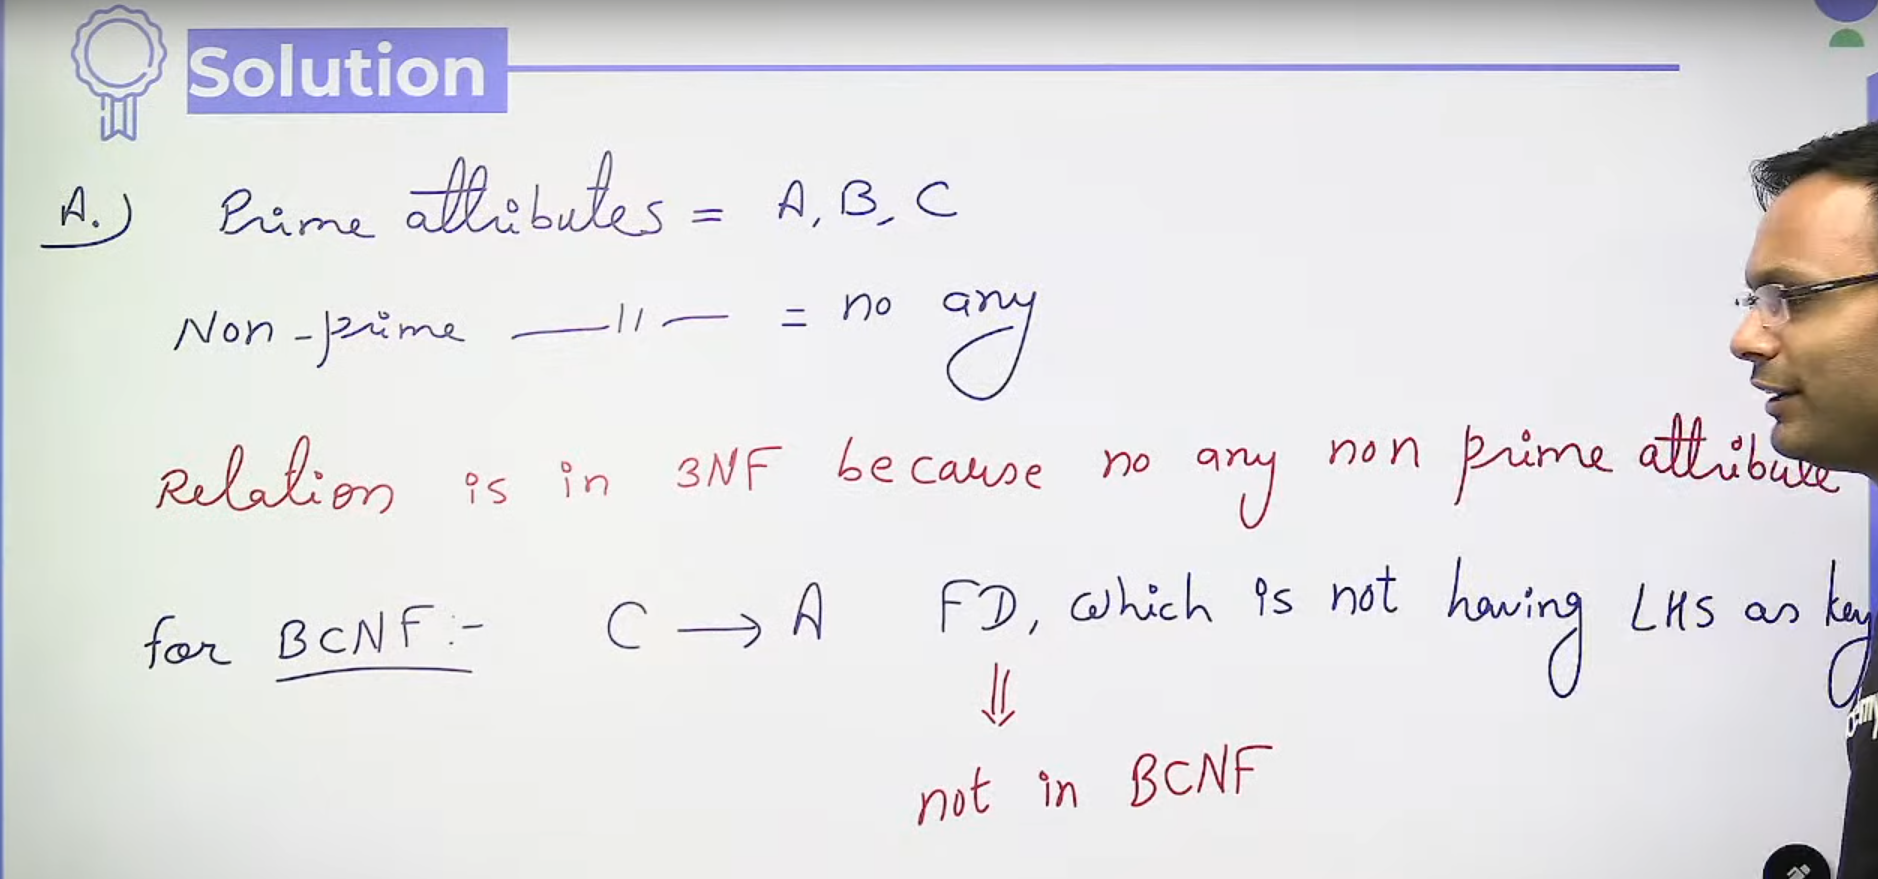 Solution
A.) Prime attributes = A, B, C
Non-prime —11— = no any
Relation is in 3NF because no any non prime attribute
for BCNF:- C → A FD, which is not having LHS as key
⇓
not in BCNF